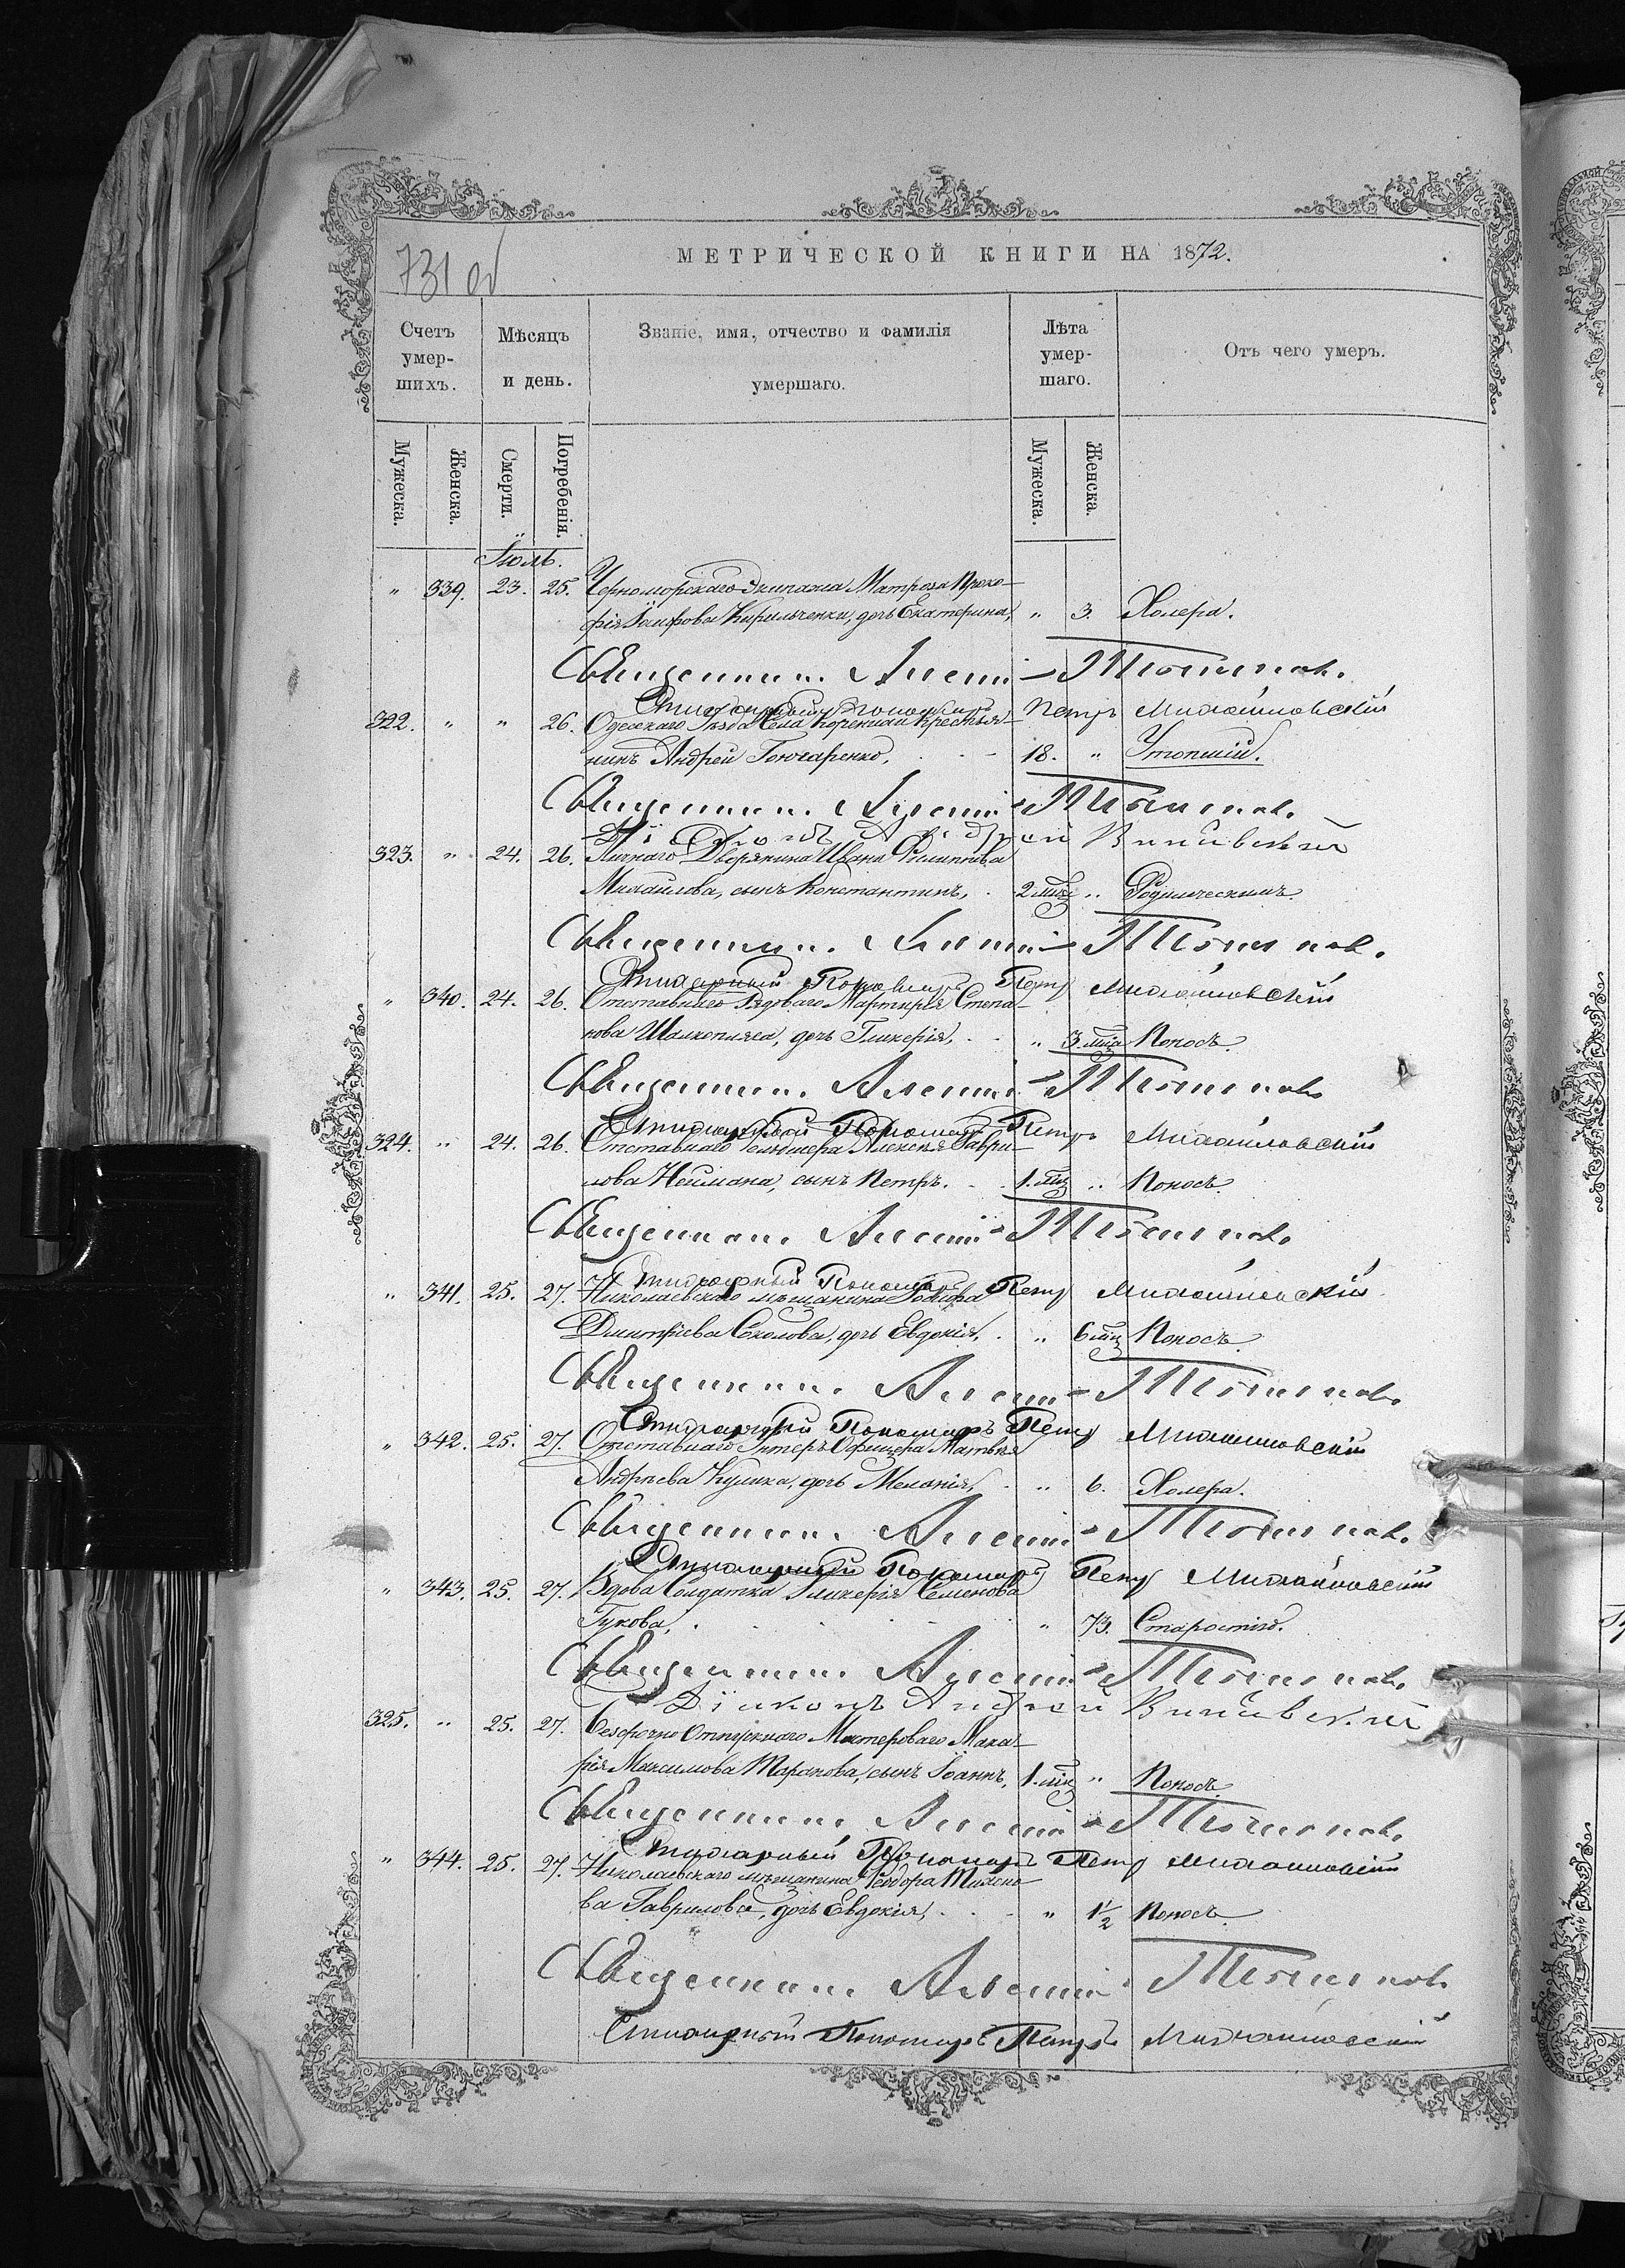 731 об
МЕТРИЧЕСКОЙ КНИГИ НА 1872.
Счетъ умер-шихъ.
Мѣсяцъ и день.
Званіе, имя, отчество и фамилія умершаго.
Лѣта умер-шаго.
Отъ чего умеръ.
Мужеска. Женска. Смерти. Погребенія. Мужеска. Женска.
Іюль.
" 339. 23. 25. Черноморскаго Экипажа Матроза Прохо-
фія Кирильченки, дочь Екатерина, " 3. Холера.
Священникъ Алексій Тютюнновъ
Стихарный Пономарь Петръ Михайловскій
322. " " 26. Одесскаго Уѣзда Села Коренихи Крестья-
нинъ Андрей Гончаренко, 18. " Утопшій.
Священникъ Алексій
Діаконъ Андрей
323. " 24. 26. Личнаго Дворянина Ивана Филиппова
Михайлова, сынъ Константинъ, 2 мѣс " Родимческимъ.
Священникъ Алексій
Стихарный Пономарь Петръ Михайловскій
" 340. 24. 26. Отставнаго Рядоваго Мартирія Степа-
нова дочь Гликерія, " 3 мѣс Поносъ.
Священникъ Алексій
Стихарный Пономарь Петръ Михайловскій
324. " 24. 26. Отставнаго Алексѣя Гаври-
лова Неймана, сынъ Петръ. 1. мѣс " Поносъ.
Священникъ Алексій
Стихарный Пономарь Петръ Михайловскій
" 341. 25. 27. Николаевскаго мѣщанина
Дмитріева Соколова, дочь Евдокія, " 6 мѣс Поносъ.
Священникъ Алексій
Стихарный Пономарь Петръ Михайловскій
" 342. 25. 27. Отставнаго Унтеръ Офицера Матвѣя
Андреева Кулика, дочь Меланія, " 6. Холера.
Священникъ Алексій
Стихарный Пономарь Петръ Михайловскій
" 343. 25. 27. Вдова Солдатка Гликерія Семенова
Гукова, " 73. Старостію.
Священникъ Алексій
Діаконъ Андрей
325. " 25. 27. Безсрочно Отпускнаго Мастероваго Мака-
рія Максимова Таранова, сынъ Іоаннъ, 1. мѣс " Поносъ.
Священникъ Алексій
Стихарный Пономарь Петръ Михайловскій
" 344. 25. 27. Николаевскаго мѣщанина Ѳеодора Тихено-
ва Гаврилова, дочь Евдокія, " 1½ Поносъ.
Священникъ Алексій
Стихарный Пономарь Петръ Михайловскій